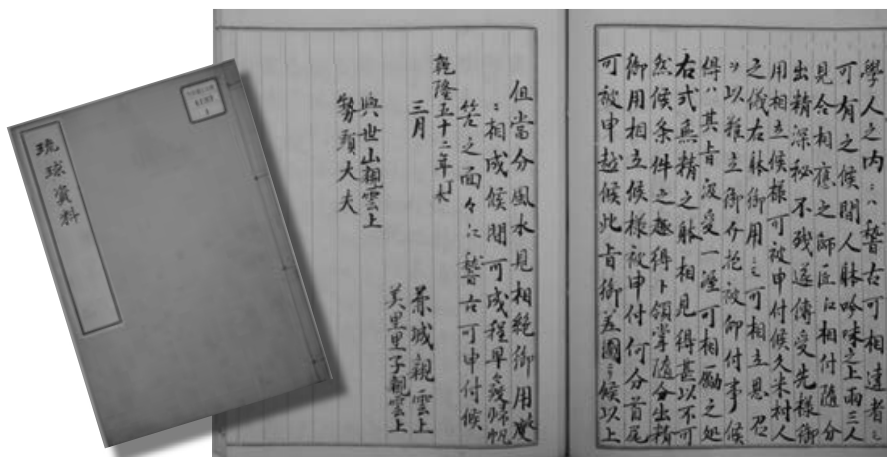 琉球資料
學人之内ニハ稽古可相達者も
可有之候間人躰吟味之上兩三人
見合相應之師匠江相付随分
出精深秘不残遂傳受先様御
用相立候様可被申付候久米村人
之儀右躰御用ニも可相立思召
ヲ以難立御介抱被仰付事候
得ハ其旨汲受一涯可相勵之処
右式無精之躰相見得甚以不可
然候条件之趣得ト領掌随分出精
御用相立候様被申付何分首尾
可被申越候此旨御差圖ニ而候以上
但當分風水見相絶御用支
ニ相成候間可成程早々帰帆
筈之面々江稽古可申付候
乾隆五十二年丁未
三月
親雲上
美里里子親雲上
與世山親雲上
勢頭大夫